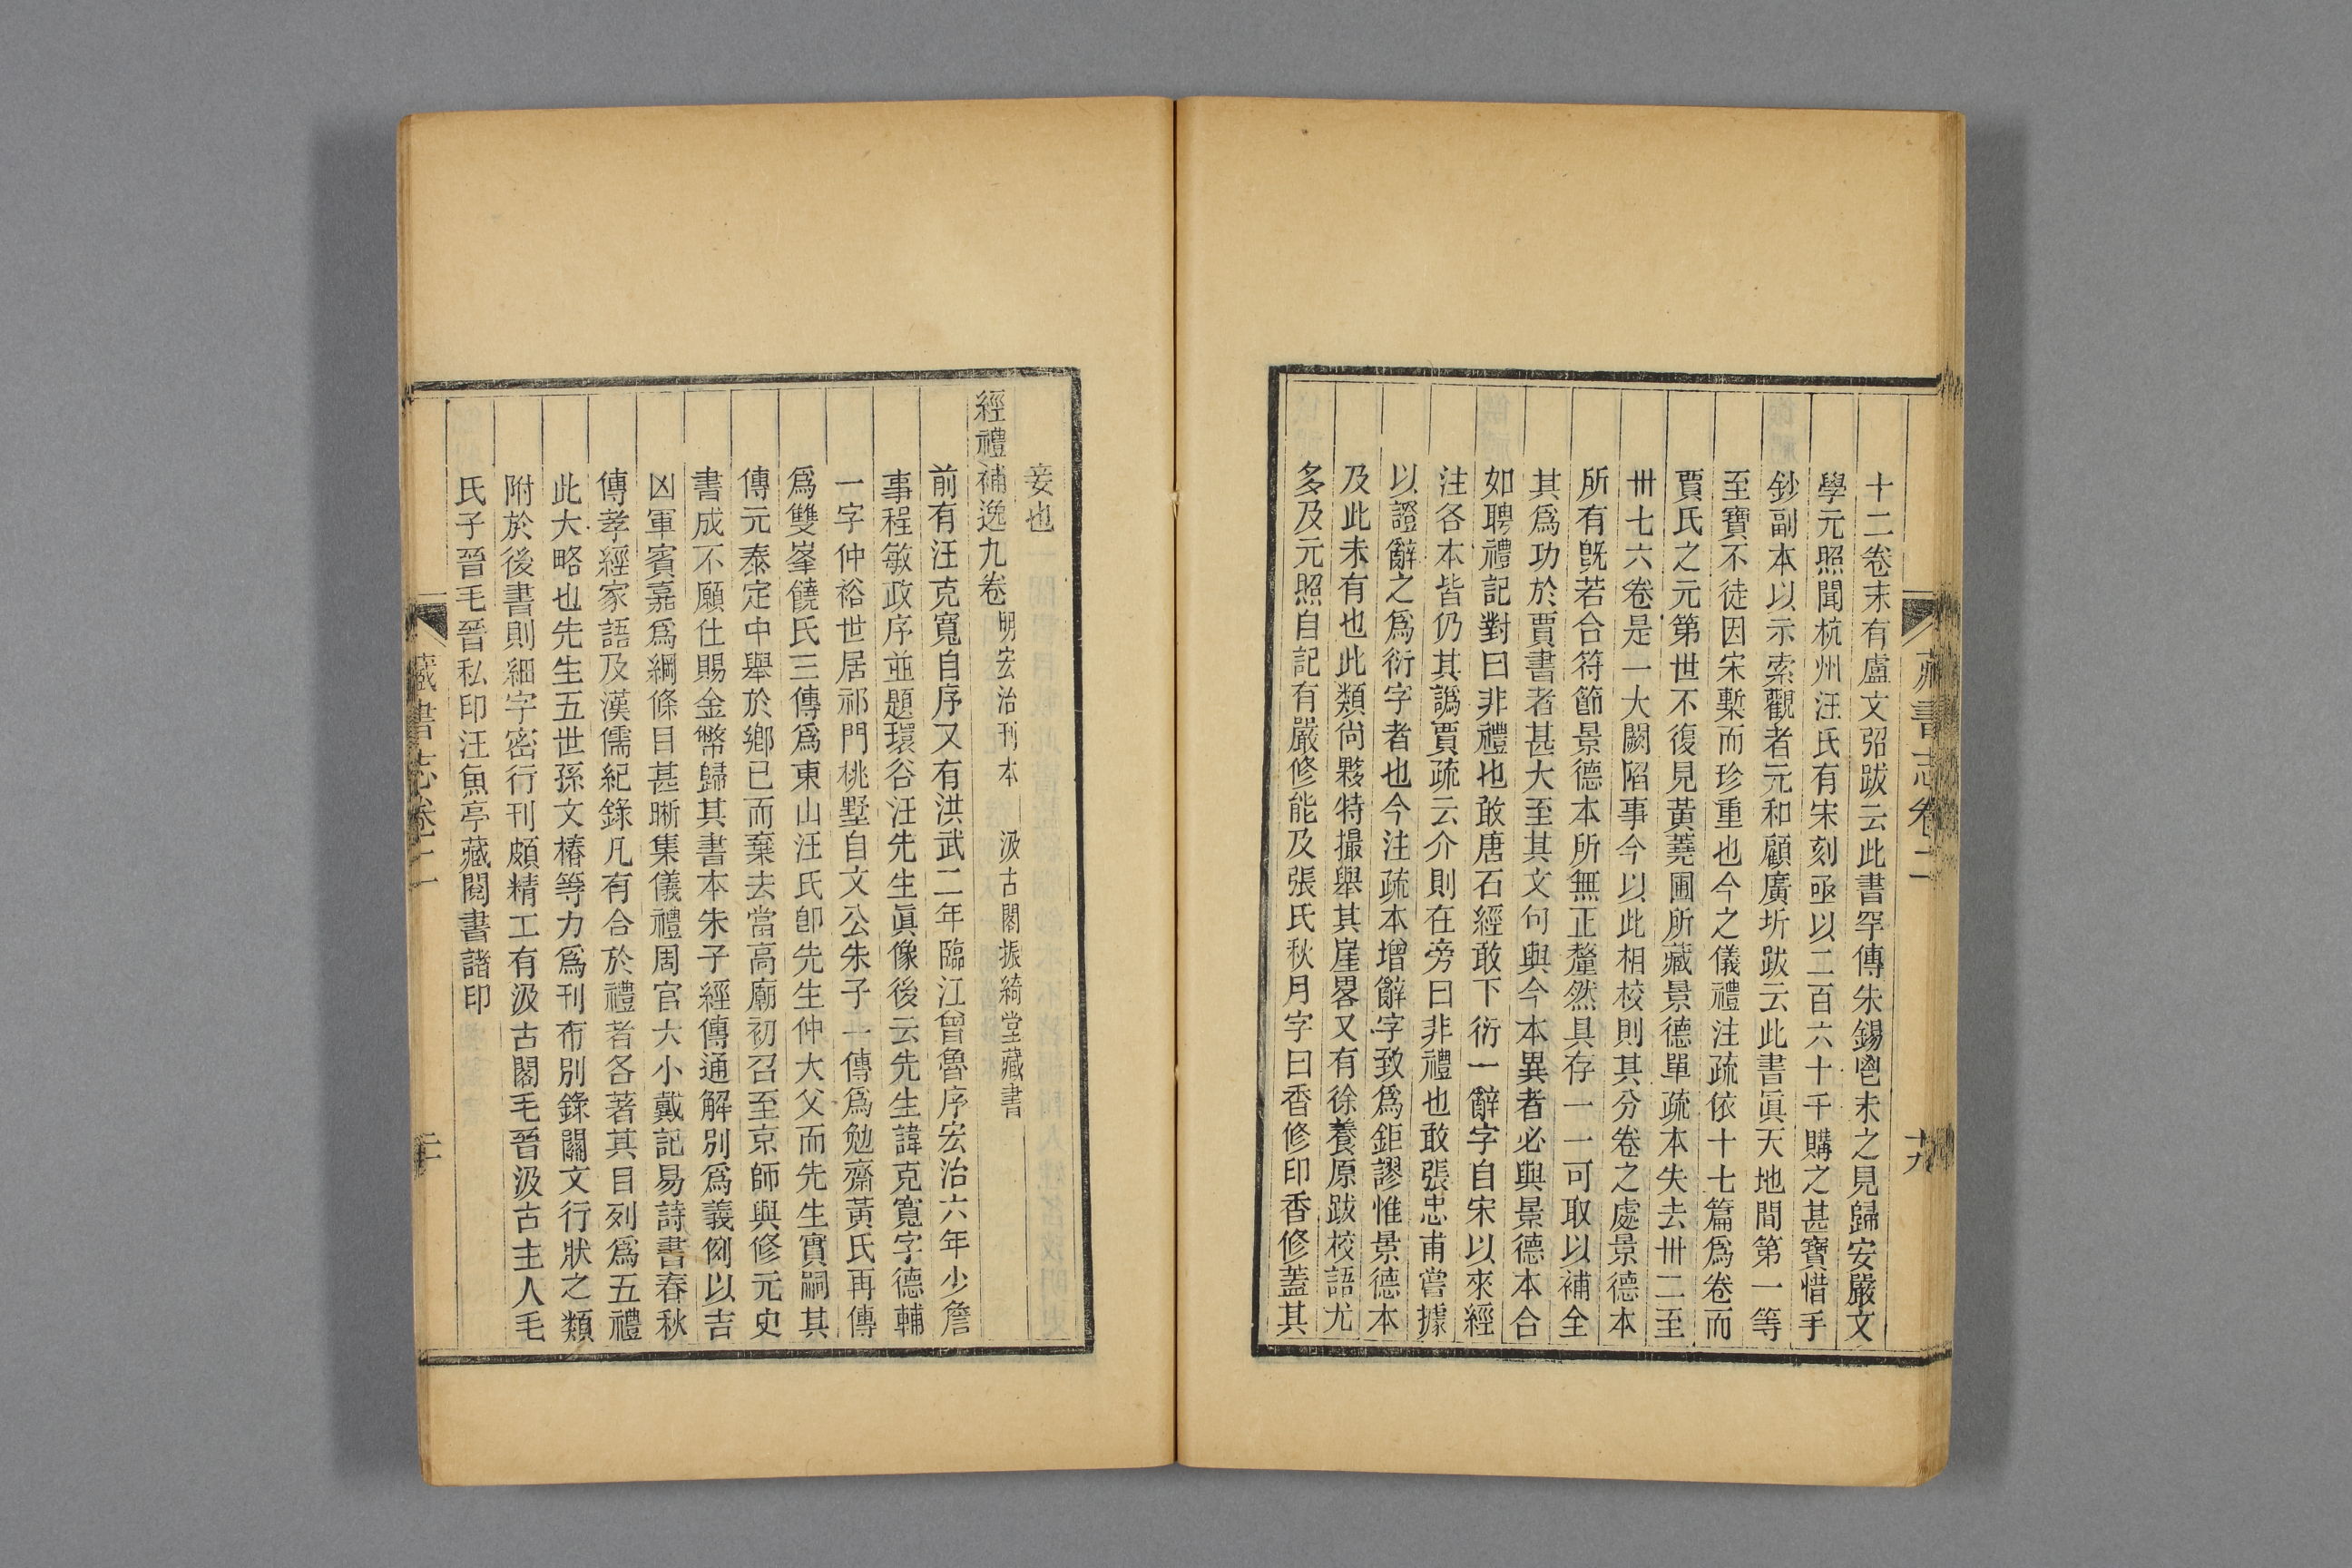 藏書志卷二
十九
十二卷末有盧文弨跋云此書罕傳朱錫鬯未之見歸安嚴文
學元照聞杭州汪氏有宋刻亟以二百六十千購之甚寶惜手
鈔副本以示索觀者元和顧廣圻跋云此書眞天地間第一等
至寶不徒因宋槧而珍重也今之儀禮注疏依十七篇爲卷而
賈氏之元第世不復見黃蕘圃所藏景德單疏本失去卅二至
卅七六卷是一大闕陷事今以此相校則其分卷之處景德本
所有旣若合符節景德本所無正釐然具存一一可取以補全
其爲功於賈書者甚大至其文句與今本異者必與景德本合
如聘禮記對曰非禮也敢唐石經敢下衍一辭字自宋以來經
注各本皆仍其譌賈疏云介則在旁曰非禮也敢張忠甫嘗據
以證辭之爲衍字者也今注疏本增辭字致爲鉅謬惟景德本
及此未有也此類尙夥特撮舉其崖畧又有徐養原跋校語尤
多及元照自記有嚴修能及張氏秋月字曰香修印香修蓋其
妾也
經禮補逸九卷 明宏治刊本 汲古閣振綺堂藏書
前有汪克寬自序又有洪武二年臨江曾魯序宏治六年少詹
事程敏政序並題環谷汪先生眞像後云先生諱克寬字德輔
一字仲裕世居祁門桃墅自文公朱子一傳爲勉齋黃氏再傳
爲雙峯饒氏三傳爲東山汪氏卽先生仲大父而先生實嗣其
傳元泰定中舉於鄉已而棄去當高廟初召至京師與修元史
書成不願仕賜金幣歸其書本朱子經傳通解別爲義例以吉
凶軍賓嘉爲綱條目甚晰集儀禮周官大小戴記易詩書春秋
傳孝經家語及漢儒紀錄凡有合於禮者各著其目列爲五禮
此大略也先生五世孫文椿等力爲刊布別錄關文行狀之類
附於後書則細字密行刊頗精工有汲古閣毛晉汲古主人毛
氏子晉毛晉私印汪魚亭藏閱書諸印
藏書志卷二
二十